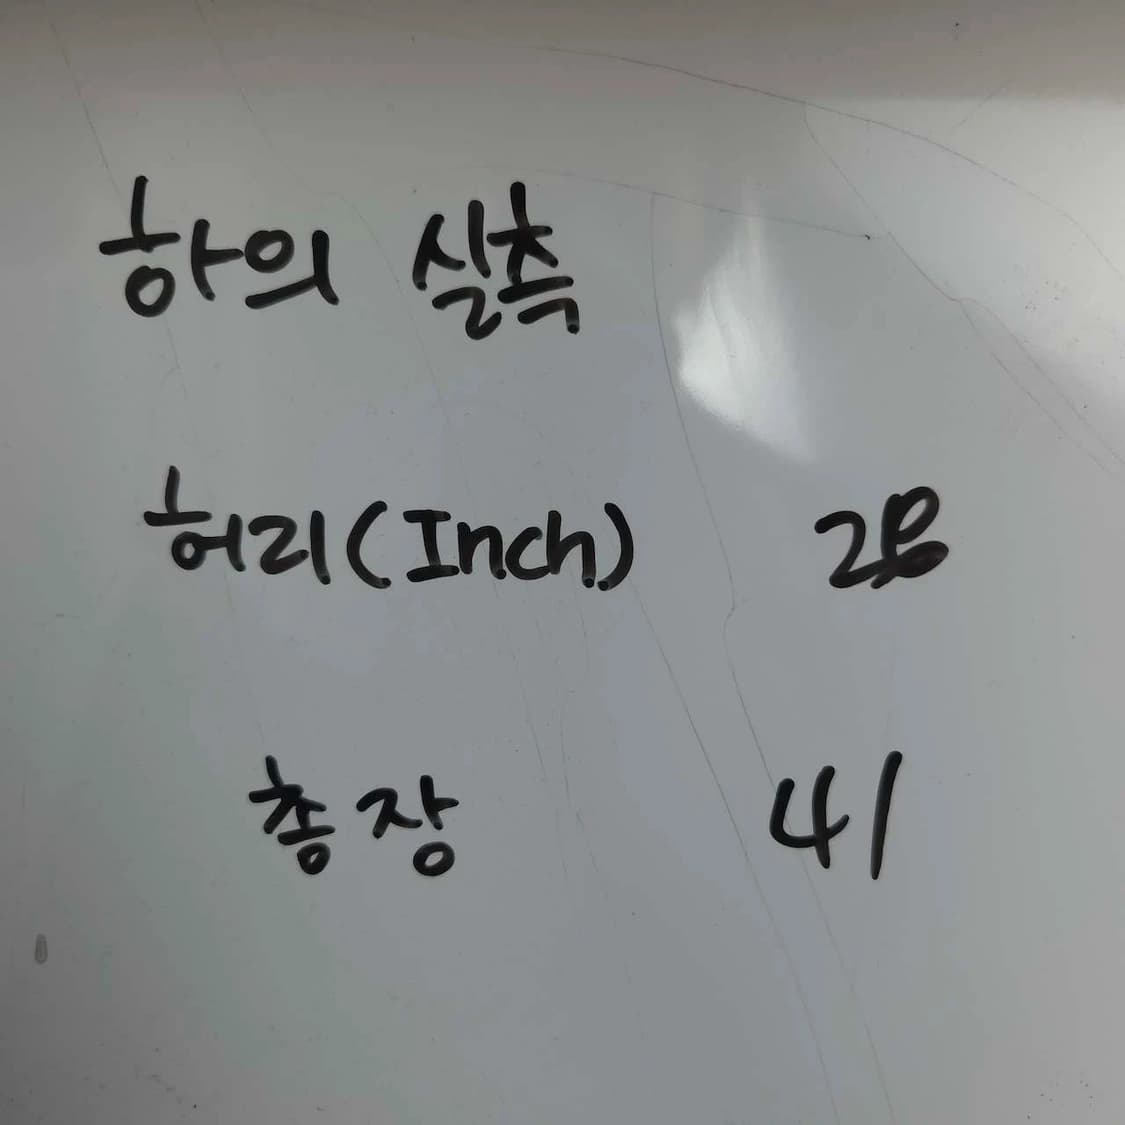 하의 실측
허리(Inch) 28
총장 41